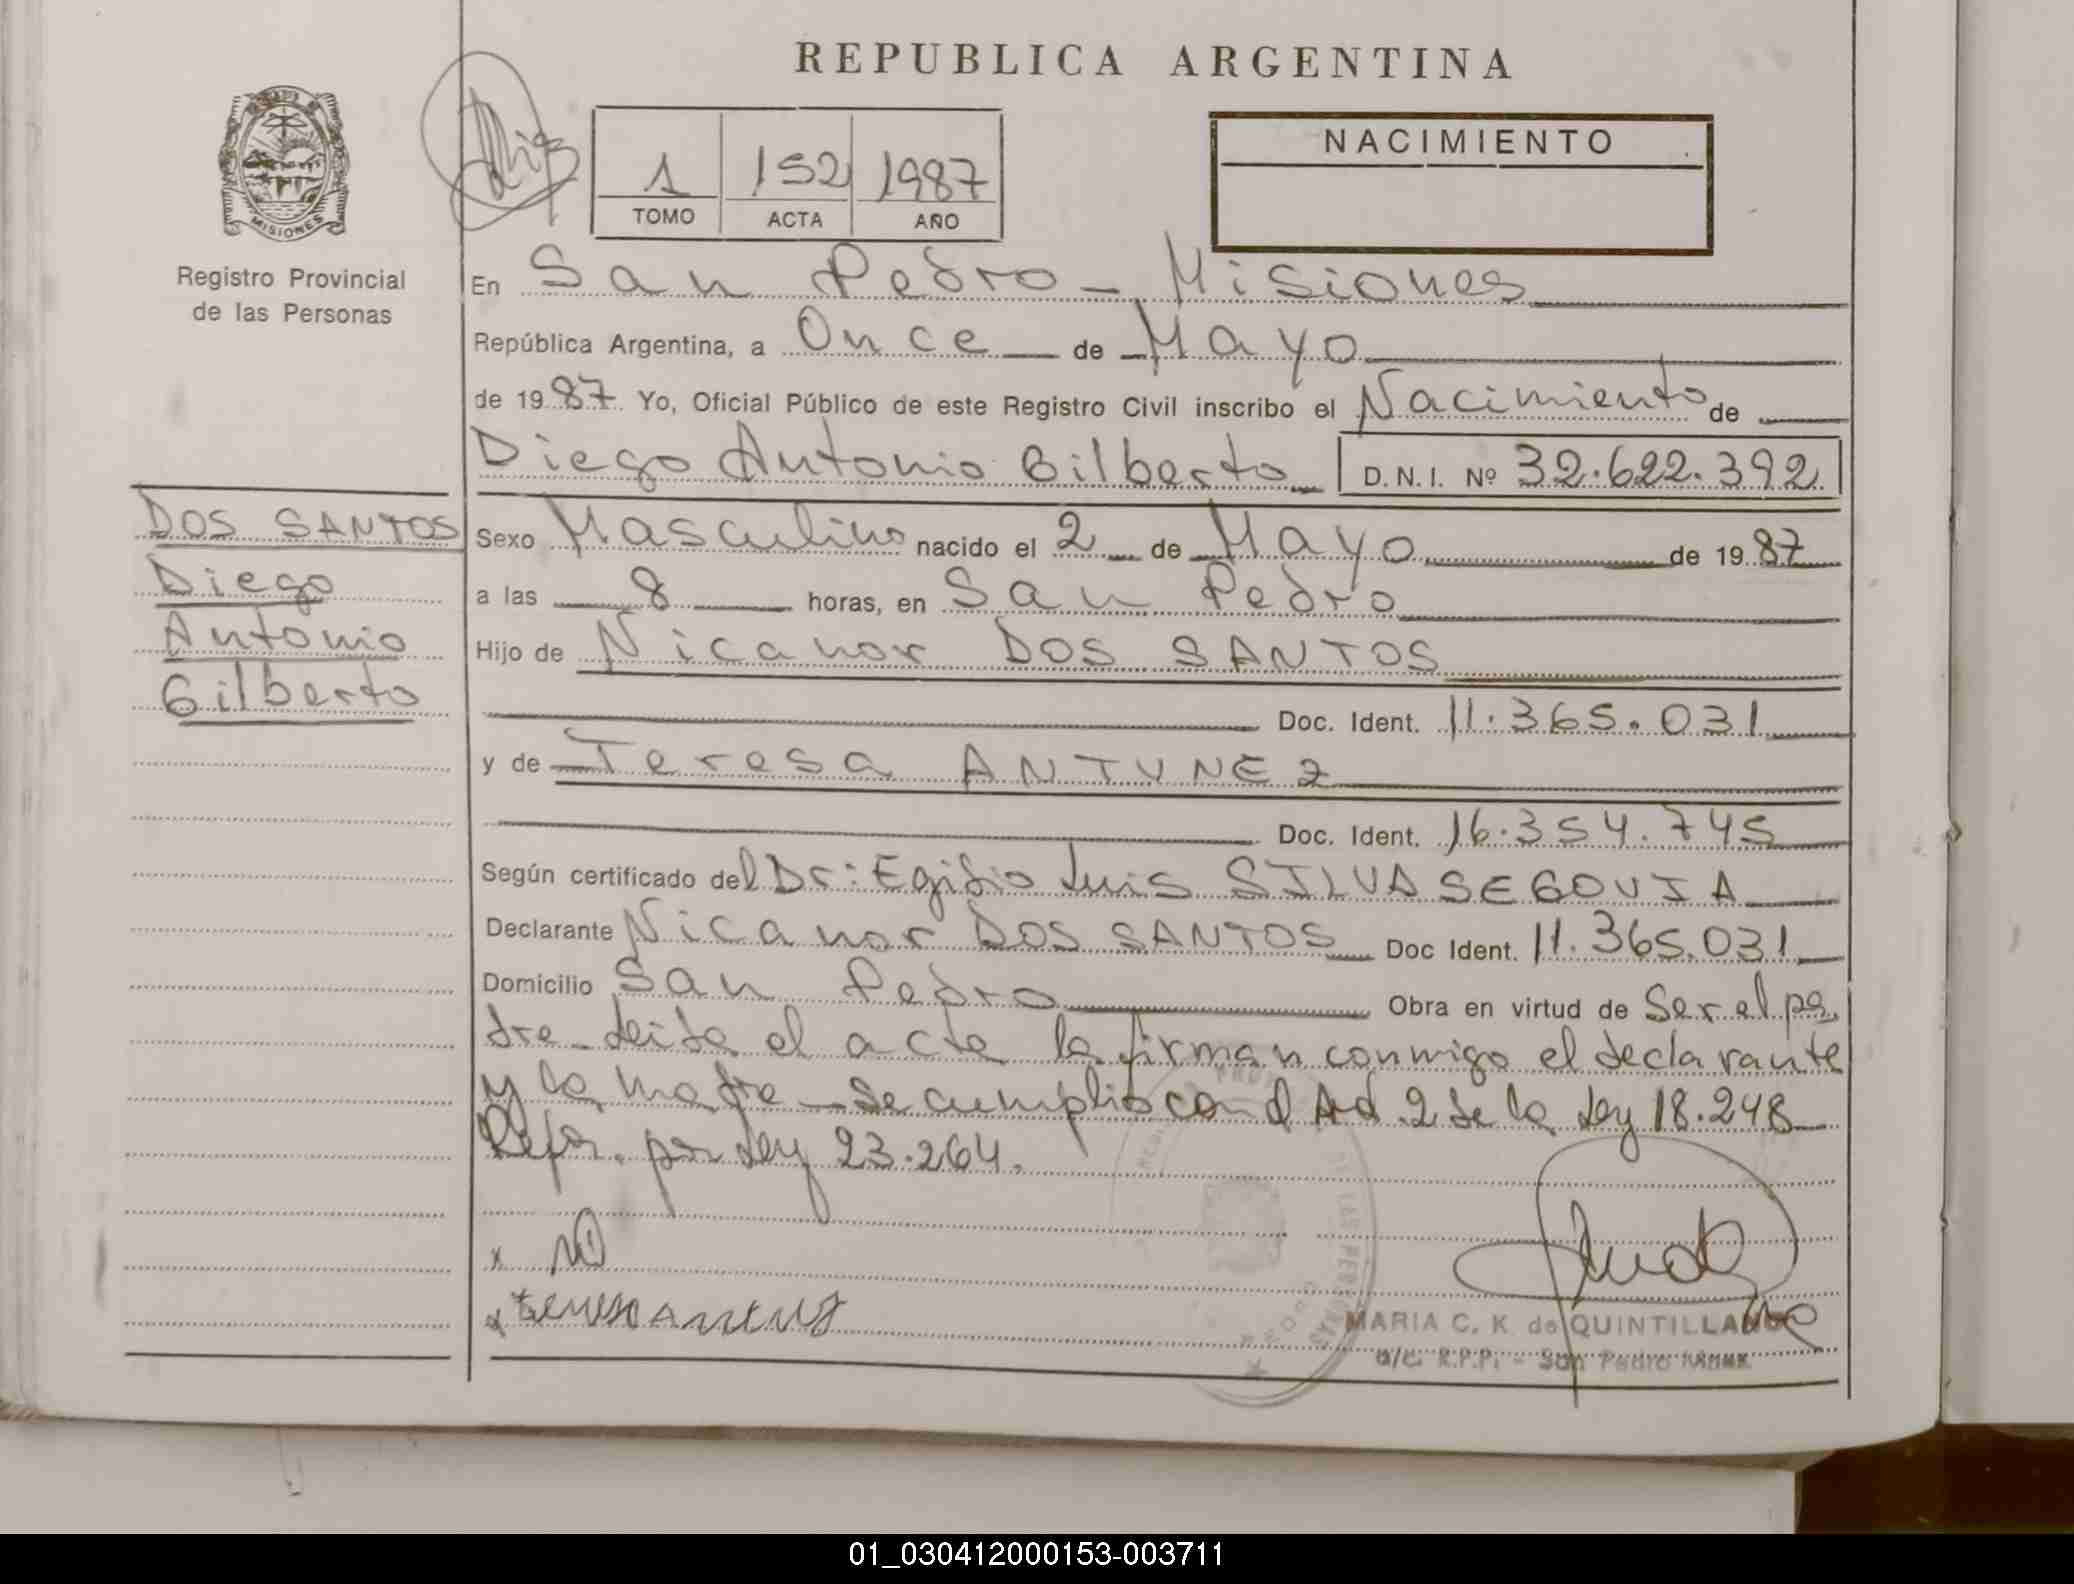 REPUBLICA ARGENTINA
MISIONES
Registro Provincial
de las Personas
1 152 1987
TOMO ACTA AÑO
NACIMIENTO
En San Pedro - Misiones
República Argentina, a Once de Mayo
de 1987 Yo, Oficial Público de este Registro Civil inscribo el Nacimiento de
Diego Antonio Gilberto D.N.I. Nº 32.622.392
DOS SANTOS
Diego
Antonio
Gilberto
Sexo Masculino nacido el 2 de Mayo de 1987
a las 8 horas, en San Pedro
Hijo de Nicanor DOS SANTOS
Doc. Ident. 11.365.031
y de Teresa ANTUNEZ
Doc. Ident. 16.354.745
Según certificado del Dr: Egidio Luis SILVA SEGOVIA
Declarante Nicanor DOS SANTOS Doc Ident. 11.365.031
Domicilio San Pedro Obra en virtud de Ser el pa
dre - Leida el acta la firman conmigo el declarante
y la madre - Se cumplio con el Art 2 de la Ley 18.248
Refor. por Ley 23.264.
MARIA C. K. de QUINTILLANO
a/c. R.P.P. - San Pedro Mnes.
01_030412000153-003711